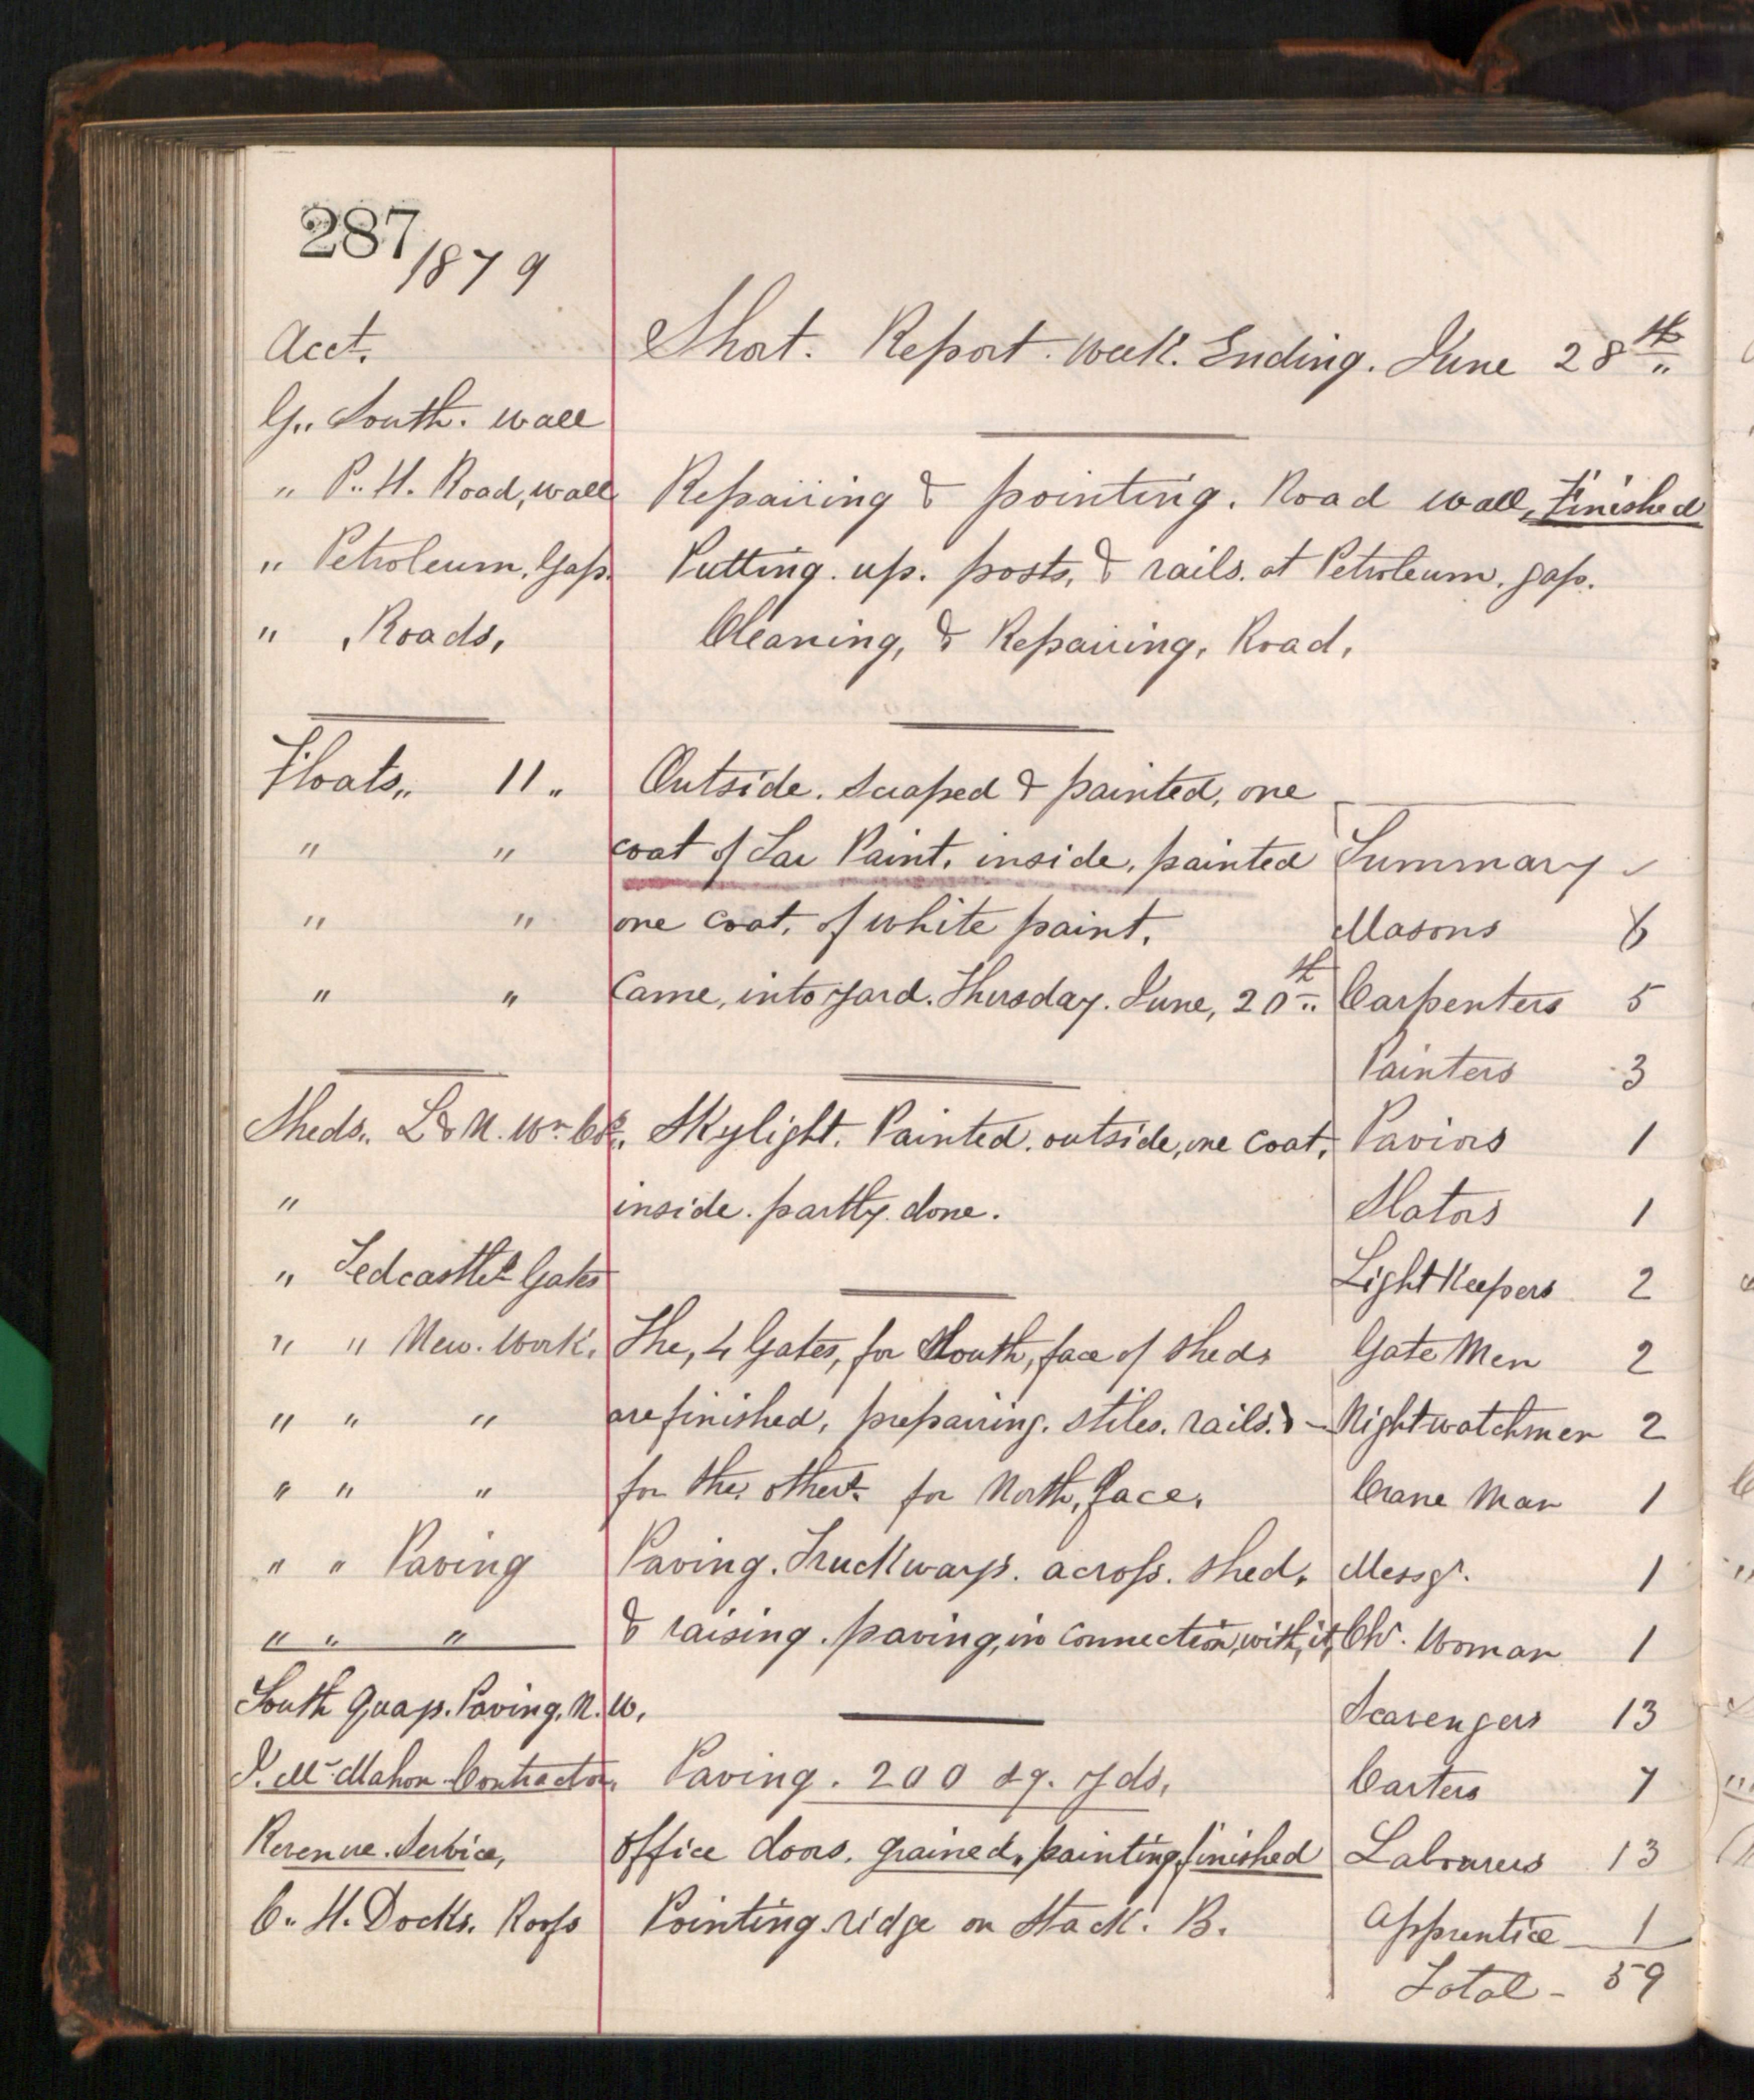 287/1879
Acct. Short. Report. Week. Ending. June 28th
G,, South. wall
" P.. H. Road, wall Repairing & pointing. Road wall, Finished
" Petroleum. Gap. Putting. up. posts, & rails. at Petroleum. gap.
" Roads, Cleaning, & Repairing, Road,
Floats,, 11,, Outside. Scraped & painted, one
" " coat of Tar Paint. inside, painted Summary
" " one coat. of white paint. Masons 6
" " Came, into yard. Thursday. June, 20th Carpenters 5
Painters 3
Sheds,, L & N. Wn Co. Skylight. Painted. outside, one coat, Paviors 1
" inside. partly. done. Slators 1
" Tedcastle's Gates Light Keepers 2
" " New. Work. The, 4 Gates, for South, face of sheds Gate Men 2
" " " are finished, preparing. stiles. rails. & Nightwatchmen 2
" " " for the others for North, face. Crane Man 1
" " Paving Paving. Truckways. across. shed, Messgr. 1
" " " & raising. paving, in connection, with, it, Chr. Woman 1
South Quay. Paving. N. W. Scavengers 13
J. McMahon Contractor, Paving. 200 sq. yds, Carters 7
Revenue. Service, office doors. grained, painting, finished Labourers 13
C.. H. Docks. Roofs Pointing ridge on Stack. B. Apprentice 1
Total - 59